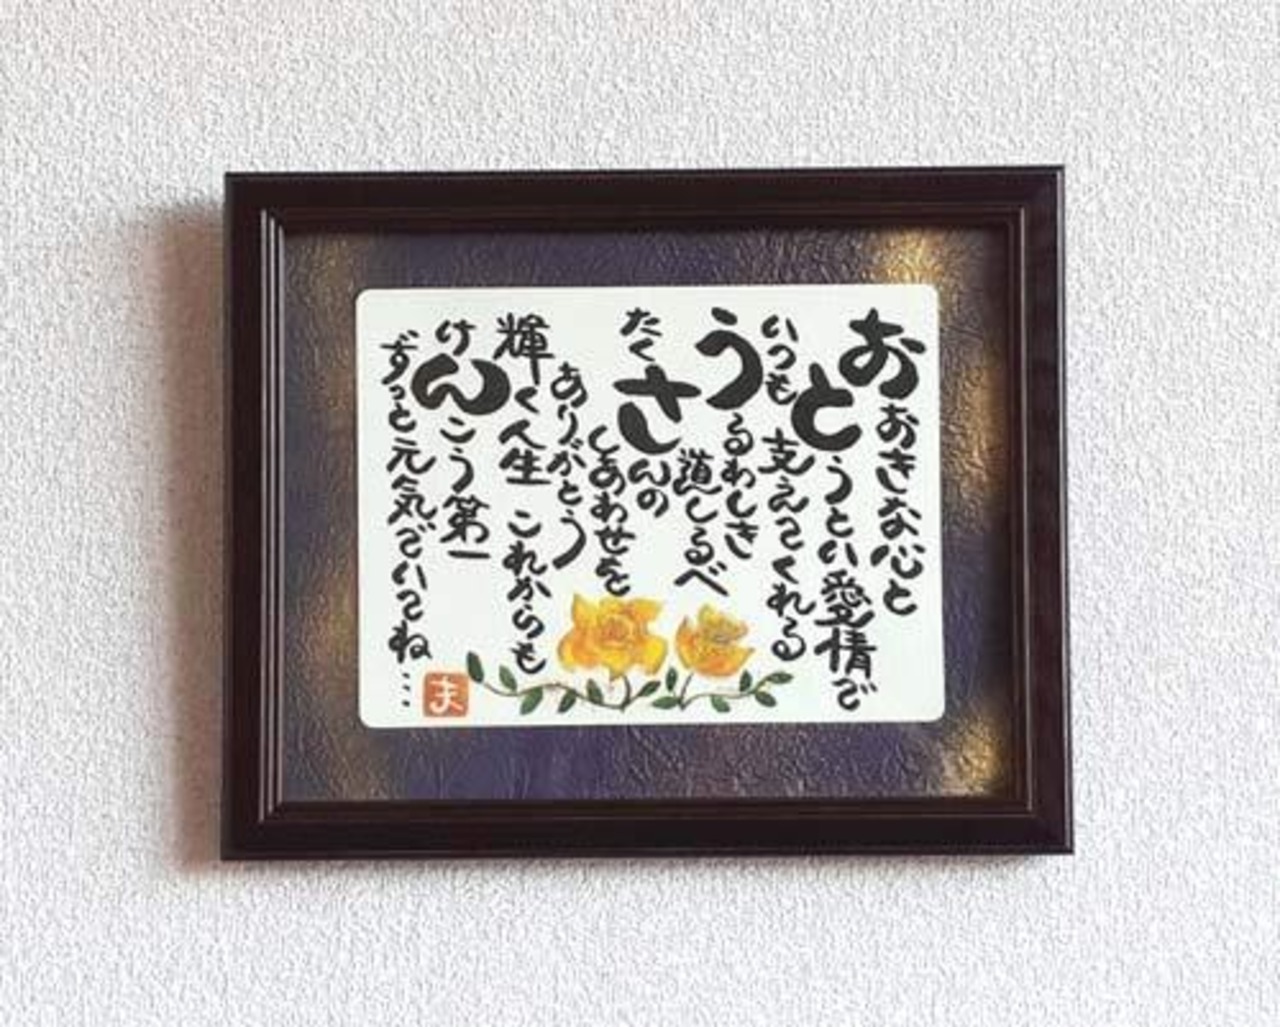 おおきな心と
とうとい愛情で
いつも支えてくれる
うるわしき
道しるべ
たくさんの
しあわせを
ありがとう
輝く人生 これからも
けんこう第一
ずっと元気でいてね…
ま